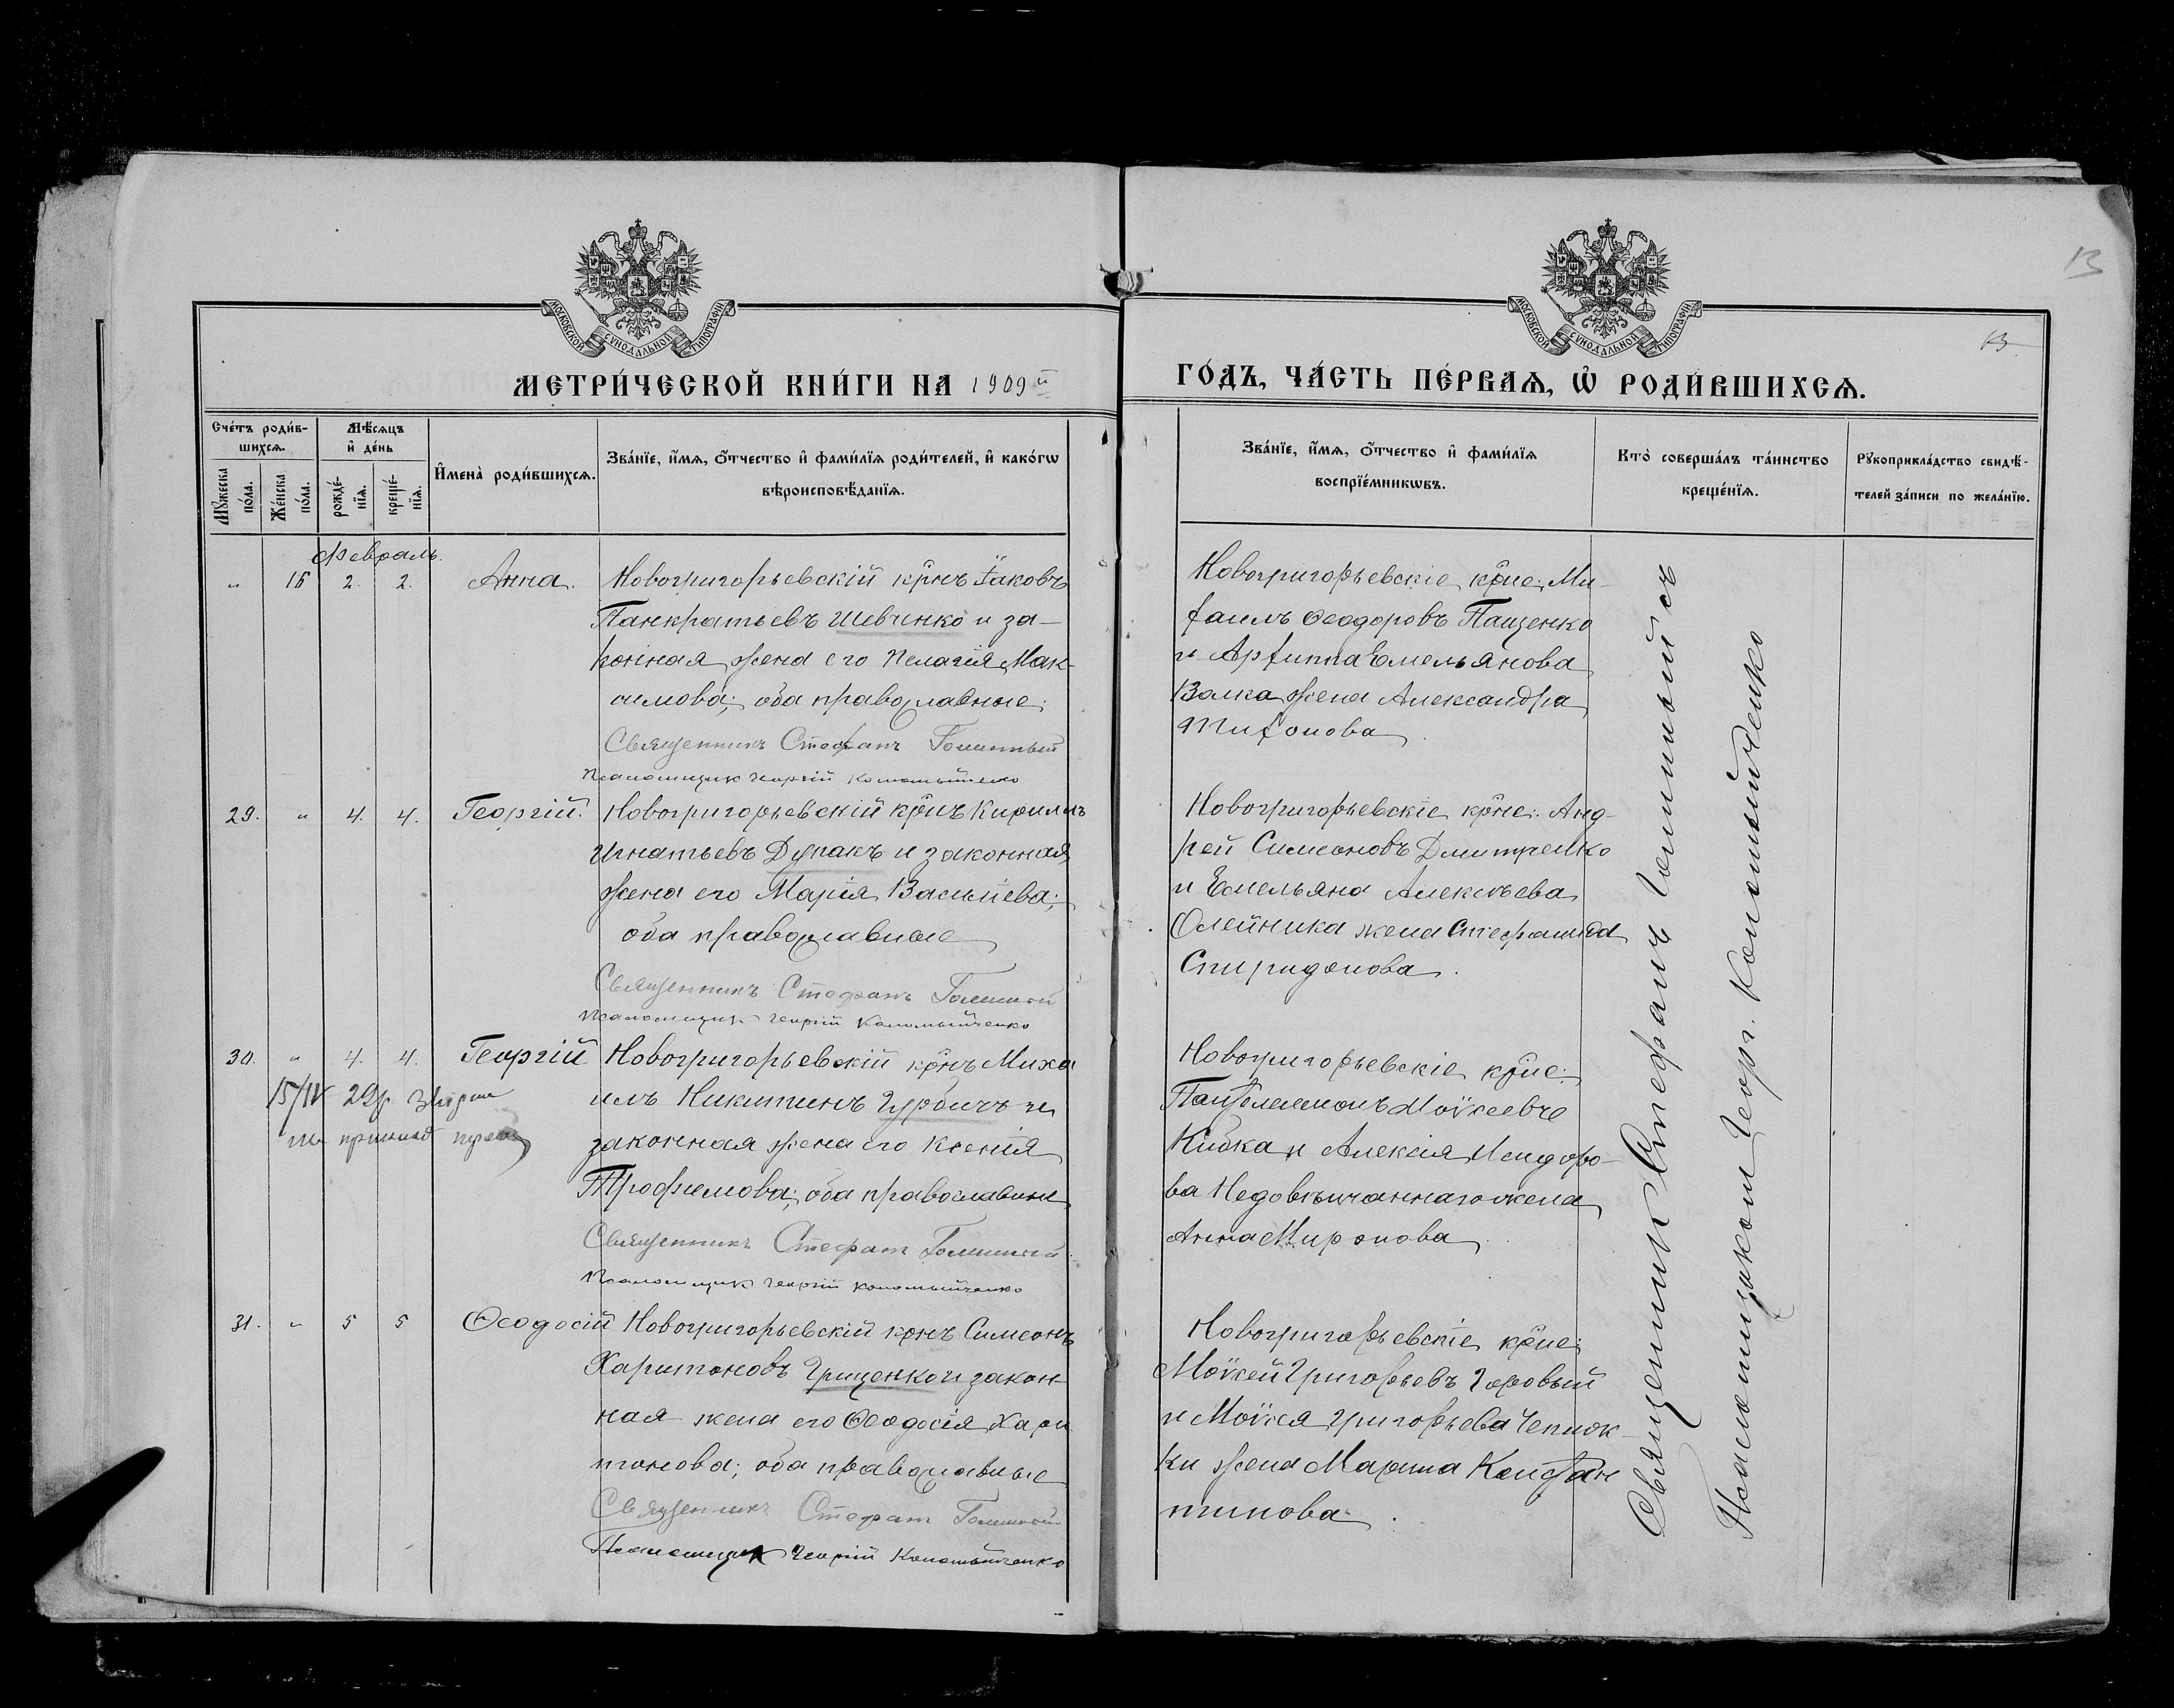 13
13
МОСКОВСКОЙ СѴНОДАЛЬНОЙ ТИПОГРАФІИ
МОСКОВСКОЙ СѴНОДАЛЬНОЙ ТИПОГРАФІИ
МЕТРИ́ЧЕСКОЙ КНИ́ГИ НА 1909й
ГО́ДЪ, ЧА́СТЬ ПЕ́РВАѦ, Ѡ҆ РОДИ́ВШИХСѦ.
Сче́тъ роди́в-
шихсѧ.
Мꙋ́жеска по́ла.
Же́нска по́ла.
Мѣ́сѧцъ
и҆ де́нь
рожде́-
нїѧ.
креще́-
нїѧ.
И҆мена̀ роди́вшихсѧ.
Зва́нїе, и҆́мѧ, ѻ҆́тчество и҆ фами́лїѧ роди́телей, и҆ како́гѡ
вѣроисповѣ́данїѧ.
Зва́нїе, и҆́мѧ, ѻ҆́тчество и҆ фами́лїѧ
воспрїе́мникѡвъ.
Кто̀ соверша́лъ та́инство
креще́нїѧ.
Рꙋкоприкла́дство свидѣ́-
телей за́писи по жела́нїю.
Февраль.
" 16 2. 2. Анна.
Новогригорьевскій крнъ Іаковъ
Панкратьевъ Шевченко и за-
конная жена его Пелагія Мак-
симова; оба православные.
Священникъ Стефанъ
Псаломщик Георгій Коломыйченко
Новогригорьевскіе крне: Ми-
хаилъ Ѳеодоровъ Пащенко
и Архиппа Емельянова
Волка жена Александра
Тихонова
29. " 4. 4. Георгій.
Новогригорьевскій крнъ Кириллъ
Игнатьевъ Дупакъ и законная
жена его Марія Васильева;
оба православные
Священникъ Стефанъ
Псаломщик Георгій Коломыйченко
Новогригорьевскіе крне: Анд-
рей Симеоновъ Дмитренко
и Емельяна Алексѣева
Олейника жена Стефанида
Спиридонова.
30. " 4. 4. Георгій
15/IV 29р.
Новогригорьевскій крнъ Миха
илъ Никитинъ Гурбичъ и
законная жена его Ксенія
Трофимова; оба православные
Священникъ Стефанъ
Псаломщик Георгій Коломыйченко
Новогригорьевскіе крне:
Пантелеимонъ Моѵсеевъ
Кибка и Алексія Исидоро-
ва Недовѣнчаннаго жена
Анна Миронова
31. " 5 5 Ѳеодосій
Новогригорьевскій крнъ Симеонъ
Харитоновъ Гриценко и закон-
ная жена его Ѳеодосія Хари
тонова; оба православные
Священникъ Стефанъ
Псаломщик Георгій Коломыйченко
Новогригорьевскіе крне:
Моѵсей Григорьевъ Горовый
и Моѵсея Григорьева
жена Марѳа Констан
тинова.
Священникъ Стефанъ
Псаломщикъ Георг. Коломыйченко